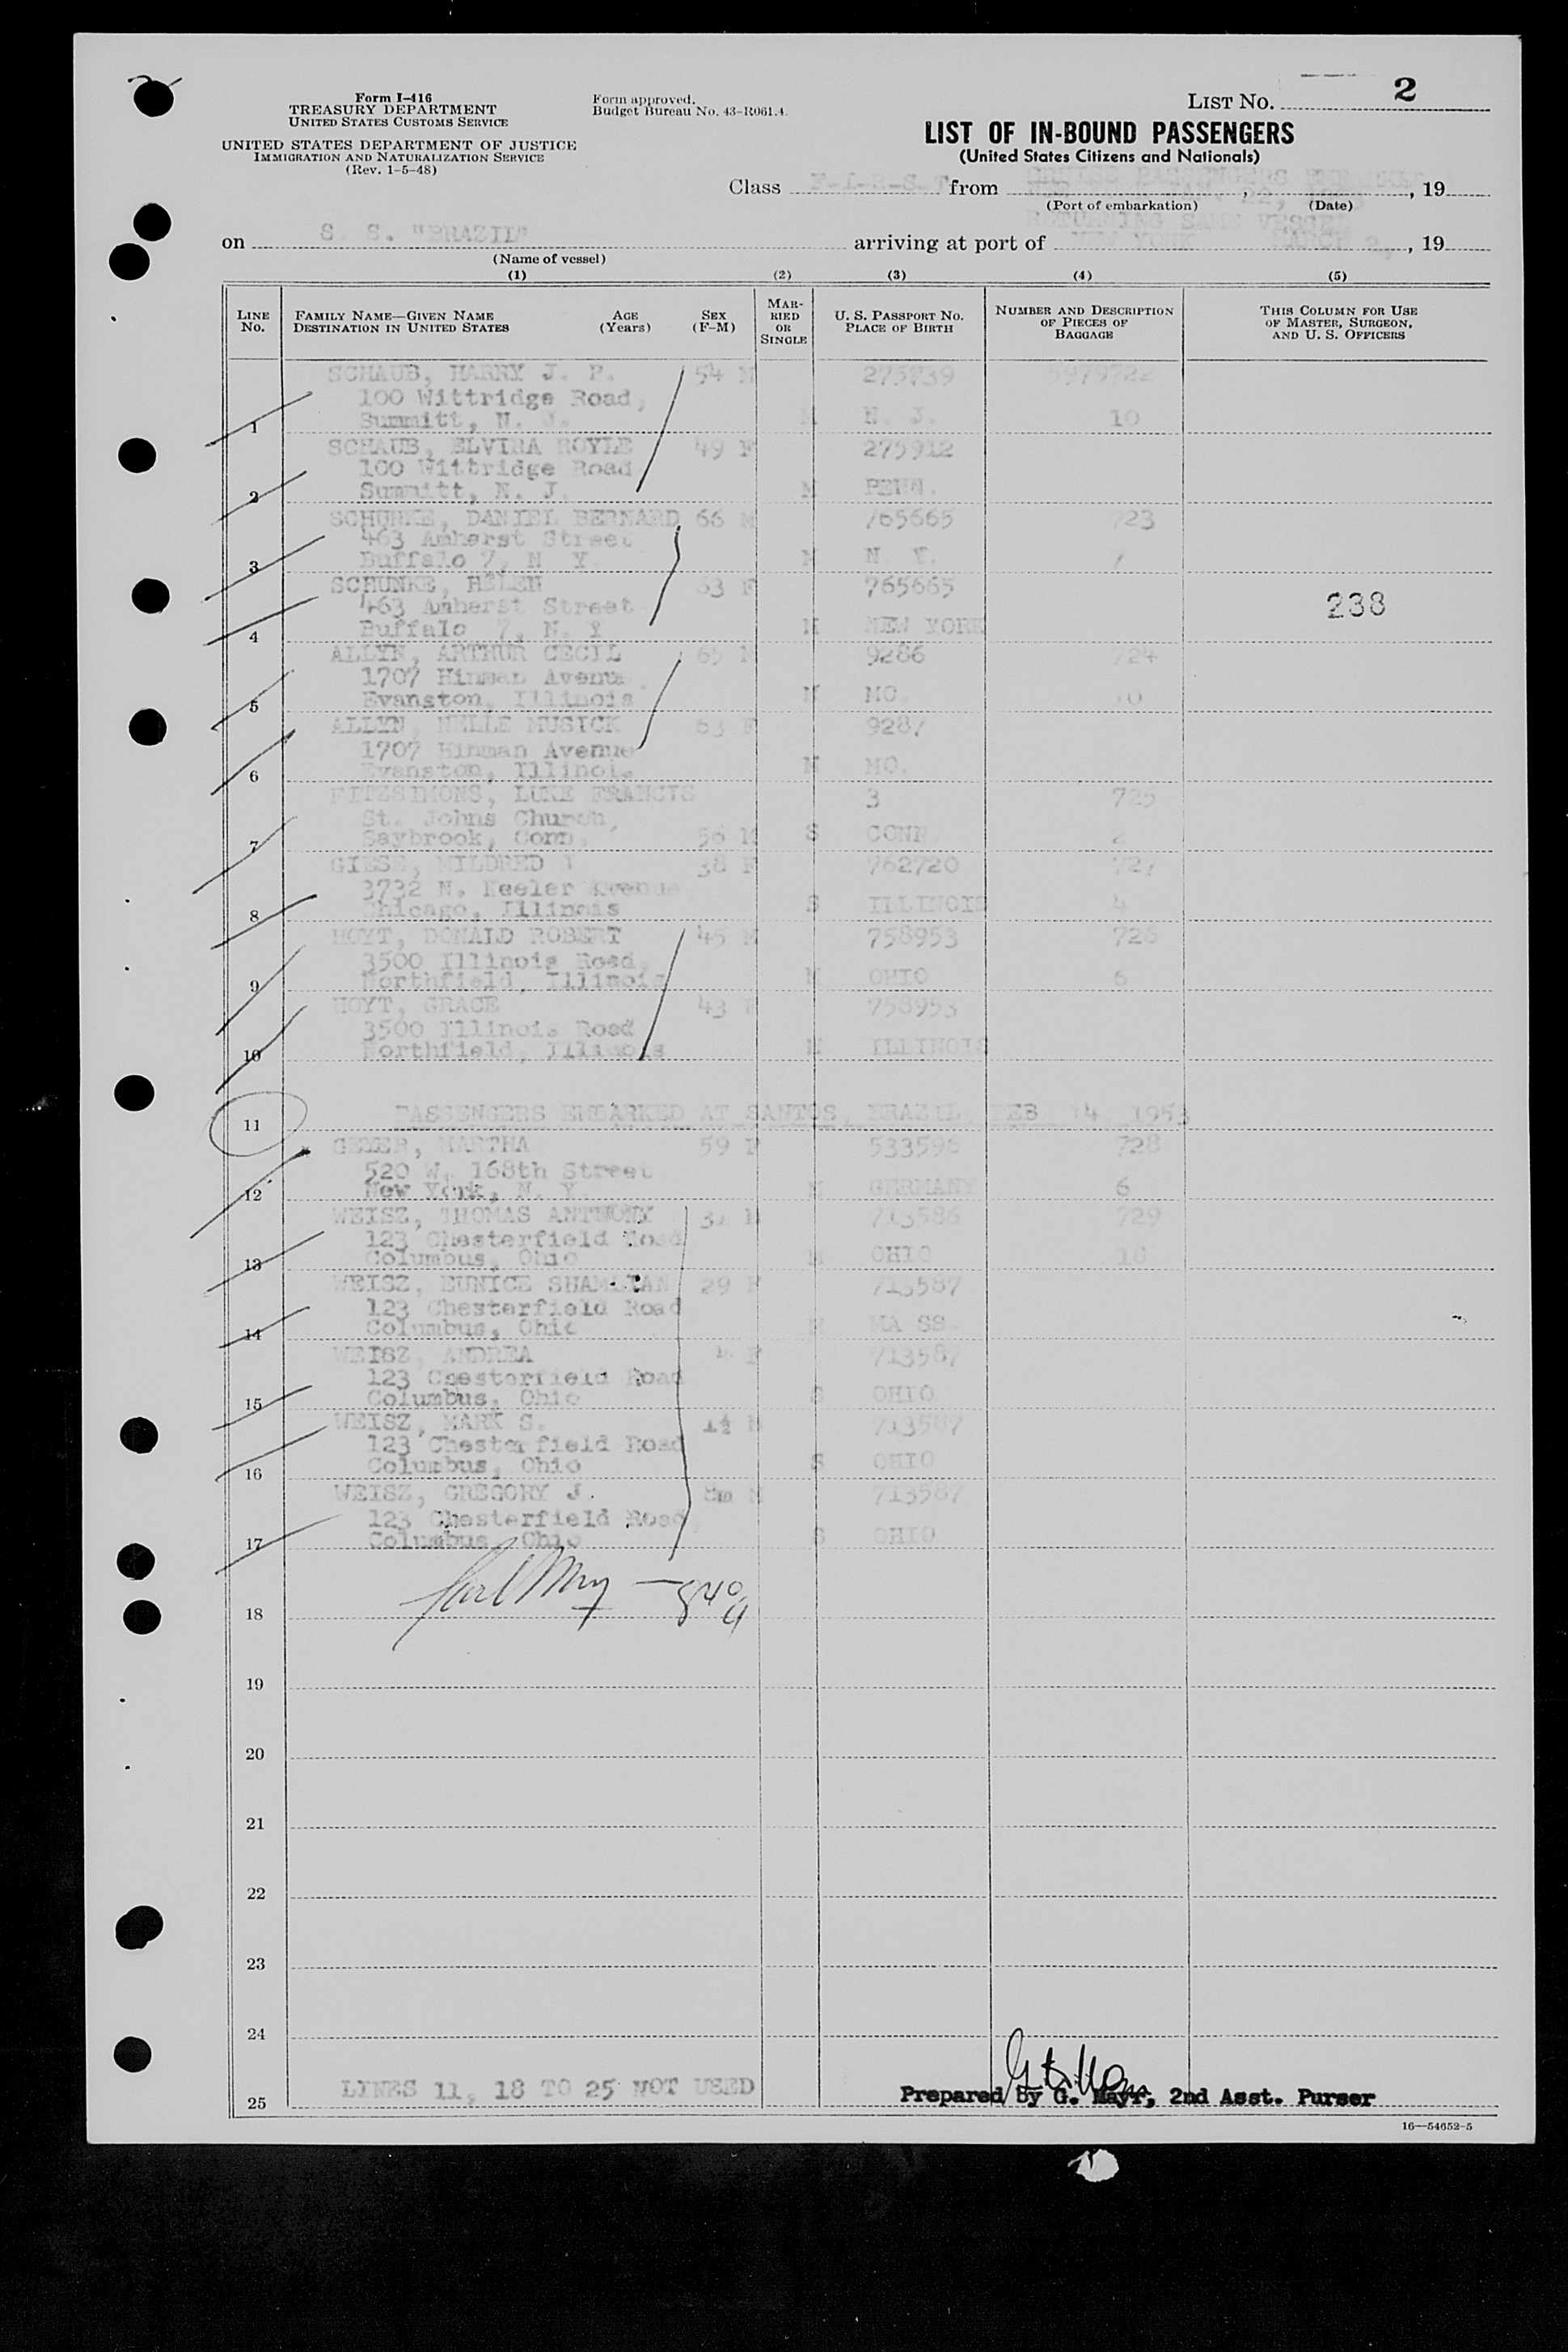 Form I-416
TREASURY DEPARTMENT
UNITED STATES CUSTOMS SERVICE
UNITED STATES DEPARTMENT OF JUSTICE
IMMIGRATION AND NATURALIZATION SERVICE
(Rev. 1-5-48)
Form approved.
Budget Bureau No. 43-R061.4.
LIST NO. 2
LIST OF IN-BOUND PASSENGERS
(United States Citizens and Nationals)
Class F-I-R-S-T from CRUISE PASSENGERS , 22, , 19
(Port of embarkation) (Date)
RETURNING SAME VESSEL
on S. S. "BRAZIL" arriving at port of NEW YORK MARCH 2, , 19
(Name of vessel)
(1) (2) (3) (4) (5)
LINE NO. FAMILY NAME—GIVEN NAME DESTINATION IN UNITED STATES AGE (Years) SEX (F-M) MARRIED OR SINGLE U. S. PASSPORT NO. PLACE OF BIRTH NUMBER AND DESCRIPTION OF PIECES OF BAGGAGE THIS COLUMN FOR USE OF MASTER, SURGEON, AND U. S. OFFICERS
SCHAUB, HARRY J. P. 54 M 275739 5979722
100 Wittridge Road,
1 Summitt, N. J. M N. J. 10
SCHAUB, ELVIRA ROYLE 49 F 275912
100 Wittridge Road
2 Summitt, N. J. M PENN.
SCHUNKE, DANIEL BERNARD 66 M 765665 723
463 Amherst Street
3 Buffalo 7, N Y M N. Y.
SCHUNKE, HELEN 63 F 765665
463 Amherst Street 238
4 Buffalo 7, N. Y M NEW YORK
ALLYN, ARTHUR CECIL 65 M 9286 724
1707 Hinman Avenue
5 Evanston, Illinois M MO. 10
ALLYN, NELLE MUSICK 63 F 9287
1707 Hinman Avenue
6 Evanston, Illinois M MO.
FITZSIMONS, LUKE FRANCIS 3 725
St. Johns Church,
7 Saybrook, Conn. 56 M S CONN 2
GIESE, MILDRED 38 F 762720 727
3732 N. Keeler Avenue
8 Chicago, Illinois S ILLINOIS 4
HOYT, DONALD ROBERT 45 M 758953 726
3500 Illinois Road,
9 Northfield, Illinois M OHIO 6
HOYT, GRACE 43 F 758953
3500 Illinois Road
10 Northfield, Illinois M ILLINOIS
11 PASSENGERS EMBARKED AT SANTOS, BRAZIL, FEB 14, 1953
MARTHA 59 F 533596 728
520 W. 168th Street
12 New York, N. Y. M GERMANY 6
WEISZ, THOMAS ANTHONY M 713586 729
123 Chesterfield Road
13 Columbus, Ohio M OHIO 18
WEISZ, EUNICE 29 F 713587
123 Chesterfield Road
14 Columbus, Ohio M MASS.
WEISZ, ANDREA F 713587
123 Chesterfield Road
15 Columbus, Ohio S OHIO
WEISZ, MARK S. 1½ M 713587
123 Chesterfield Road
16 Columbus, Ohio S OHIO
WEISZ, GREGORY J. 8m M 713587
123 Chesterfield Road,
17 Columbus, Ohio S OHIO
18
19
20
21
22
23
24
LINES 11, 18 TO 25 NOT USED
25 Prepared by G. Mayr, 2nd Asst. Purser
16—54652-5